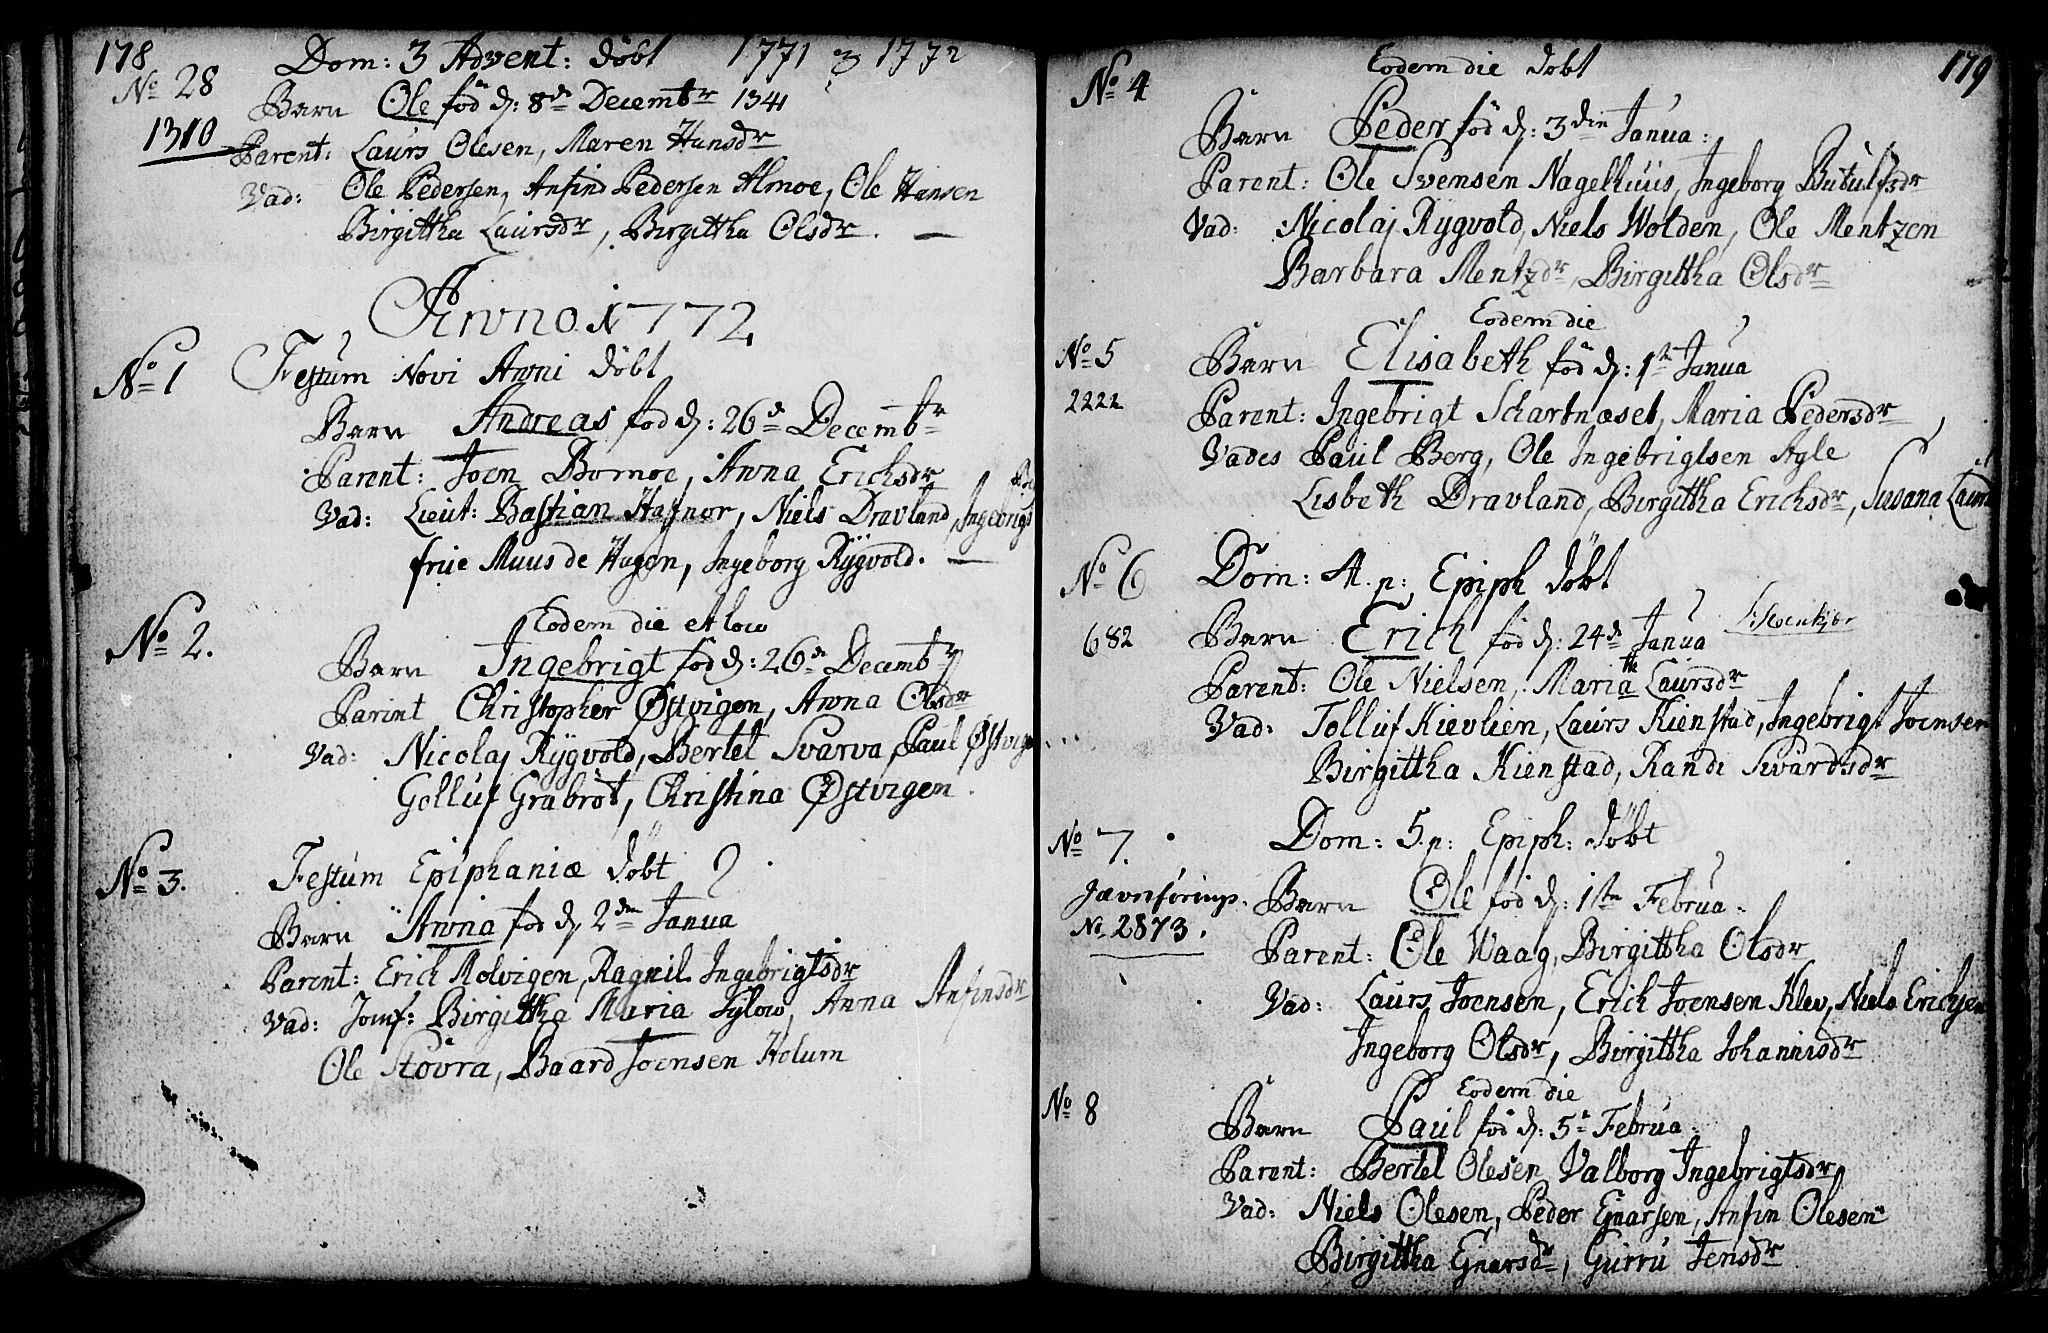 178
Dom: 3 Advent: døbt 1771 & 1772
No 28
Barn Ole fød d: 8de Decembr 1341
1310
Parent: Laurs Olesen, Maren Hansdr
Vad: Ole Pedersen, Anfind Pedersen Almoe, Ole Hansen
Birgittha Laursdr, Birgittha Olsdr.
Anno 1772
No 1 Festum Novi Anni døbt
Barn Andreas fød d: 26de Decembr
Parent: Joen Bornoe, Anna Erichsdr
Vad: Lieut: Bastian Hafnor, Niels Dravland,
frue Muus de Hagen, Ingeborg Rygvold.
No 2. Eodem die et loco
Barn Ingebrigt fød d: 26de Decembr
Parint Christopher Østvigen, Anna Olsdr
Vad: Nicolaj Rygvold, Bertel Svarva, Paul Østvigen
Golluf Grabrøt, Christina Østvigen.
No 3. Festum Epiphaniæ døbt
Barn Anna fød d 2den Janua
Parent: Erich Rolvigen, Ragnil Ingebrigtsdr
Vad: Jomf: Birgittha Maria Sylow, Anna Anfinsdr
Ole Støvra, Baard Joensen Holum
179
No 4 Eodem die døbt
Barn Peder fød d: 3die Janua:
Parent: Ole Svensen Nagelhuus, Ingeborg Butulfsdr
Vad: Nicolaj Rygvold, Niels Wolden, Ole Mentzen
Barbara Mentzdr, Birgittha Olsdr
Eodem die
No 5 Barn Elisabeth fød d: 1te Janua
2222 Parent: Ingebrigt Schartnæset, Maria Pedersdr
Vades Paul Berg, Ole Ingebrigtsen Agle
Lisbeth Dravland, Birgittha Erichsdr, Susana
No 6 Dom: 4. p: Epiph døbt
682 Barn Erich fød d: 24de Janua
Parent: Ole Nielsen, Maritha Laursdr
Vad: Tolluf Kievlien, Laurs Kienstad, Ingebrigt Joensen
Birgittha Kienstad, Randi Sivardsdr
No 7. Dom: 5. p: Epiph: døbt
Jævnføring. Barn Ole fød d: 1te Februa:
No 2873. Parent: Ole Waag, Birgittha Olsdr
Vad: Laurs Joensen, Erich Joensen Klev, Niels Erichsen
Ingeborg Olsdr, Birgittha Johannisdr
Eodem die
No 8 Barn Paul fød d: 5te Februa.
Parent: Bertel Olesen, Valborg Ingebrigtsdr
Vad: Niels Olesen, Peder Ejnarsen, Anfin Olesen
Birgittha Ejnarsdr, Gurru Jensdr